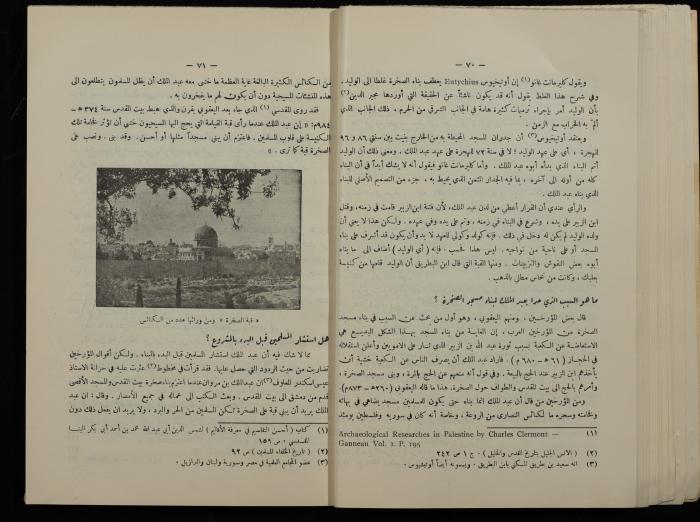 — ٧٠ —
ويقول كليرمانت غانو (١) إن أوتيخيوس Eutychius يعطف بناء الصخرة غلطا الى الوليد.
وفي شرح هذا الغلط يقول أنه قد يكون ناشئاً عن الحقيقة التي أوردها مجير الدين (٢)
بأن الوليد أمر بإجراء ترميمات كبيرة هامة في الجانب الشرقي من الحرم، ذلك الجانب الذي
ألمّ به الخراب مع الزمن.
ويعتقد أوتيخيوس (٣) أن جدران المسجد المحيطة به من الخارج بنيت بين سنتي ٨٦ و ٩٦
للهجرة، أي على عهد الوليد؛ لا في سنة ٧٢ للهجرة على عهد عبد الملك. ومعنى ذلك أن الوليد
أتم البناء الذي بدأه أبوه عبد الملك. وأما كليرمانت غانو فيقول أنه لا يشك أبداً في أن البناء
كله من أوله الى آخره، بما فيه الجدار المثمن الذي يحيط به، جزء من التصميم الأصلي للبناء
الذي بناه عبد الملك.
والرأي عندي أن القرار أعطي من لدن عبد الملك، لأن فتنة ابن الزبير قامت في زمنه، وقتل
ابن الزبير على يده، وشرع في البناء في زمنه، وتم على يده وفي عهده. ولكن هذا لا يعني أن
ولده الوليد لم يكن له دخل في ذلك. فإنه كولد وكولي للعهد لا بد وأن يكون قد أشرف على بناء
المسجد أو على ناحية من نواحيه. ليس هذا فحسب. فإنه (أي الوليد) أضاف الى ما بناه
أبوه بعض النقوش والتزيينات. ومنها القبة التي قال ابن البطريق أن الوليد قلعها من كنيسة
بعلبك، وكانت من نحاس مطلي بالذهب.
ما هو السبب الذي حدا بعبد الملك لبناء مسجد الصخرة؟
قال بعض المؤرخين، ومنهم اليعقوبي، وهو أول من بحث عن السبب في بناء مسجد
الصخرة من المؤرخين العرب، إن الغاية من بناء المسجد بهذا الشكل البديع هي
الاستعاضة عن الكعبة بسبب ثورة عبد الله بن الزبير الذي ثار على الامويين وأعلن استقلاله
في الحجاز (٦١ هـ — ٦٨٠ م). فأراد عبد الملك أن يصرف الناس عن الكعبة خشية أن
يأخذهم ابن الزبير عند الحج بالبيعة. وفي قول أنه منعهم عن الحج بالمرة، وبنى مسجد الصخرة،
وأمرهم بالحج الى بيت المقدس والطواف حول الصخرة. هذا ما قاله اليعقوبي (٢٦٠هـ — ٨٧٣م).
ومن المؤرخين من قال أن عبد الملك إنما بناه حتى يكون للمسلمين مسجد يضاهي في بهائه
وفخامته وسحره ما لكنائس النصارى من الروعة، وخاصة أنه كان في سوريه وفلسطين يومئذ
(١) Archaeological Researches in Palestine by Charles Clermont —
Ganneau Vol. I. P. 195
(٢) (الانس الجليل بتاريخ القدس والخليل). ج ١ ص ٢٤٢
(٣) انه سعيد بن بطريق المكنى بابن البطريق. ويسمونه أيضاً أوتيخيوس.
— ٧١ —
من الكنائس الكثيرة البالغة غاية العظمة ما خشي معه عبد الملك أن يظل المسلمون يتطلعون الى
هذه المنشئات المسيحية دون أن يكون لهم ما يفخرون به.
فقد روى المقدسي (١) الذي جاء بعد اليعقوبي بقرن والذي هبط بيت المقدس سنة ٣٧٤هـ —
٩٨٤م: « إن عبد الملك عندما رأى قبة القيامة التي يحج اليها المسيحيون خشي أن تؤثر فخامة تلك
الكنيسة على قلوب المسلمين. فاعتزم أن يبني مسجداً مثلها أو أحسن. وقد بنى. ونصب على
الصخرة قبة كما ترى. »
« قبة الصخرة » ومن ورائها عدد من الكنائس
هل استشار المسلمين قبل البدء بالمشروع؟
مما لا شك فيه أن عبد الملك استشار المسلمين قبل البدء بالبناء. ولكن أقوال المؤرخين
تضاربت من حيث الردود التي حصل عليها. فقد قرأت في مخطوط (٢) عثرت عليه في خزانة الاستاذ
عيسى اسكندر المعلوف (٣) ان عبد الملك بن مروان عندما اعتزم بناء صخرة بيت المقدس والمسجد الأقصى
قدم من دمشق الى بيت المقدس. وبعث الكتب الى عماله في جميع الأمصار. وقال: ان عبد
الملك يريد أن يبني قبة على الصخرة لتكن المسلمين من الحر والبرد، ولا يريد ان يفعل ذلك دون
(١) كتاب (أحسن التقاسيم في معرفة الأقاليم) لشمس الدين أبي عبد الله محمد بن أحمد أبي بكر البنا
المقدسي. ص ١٥٩
(٢) (تاريخ الخلفاء المسلمين) ص ٩٢
(٣) عضو المجامع العلمية في مصر وسورية ولبنان والبرازيل.